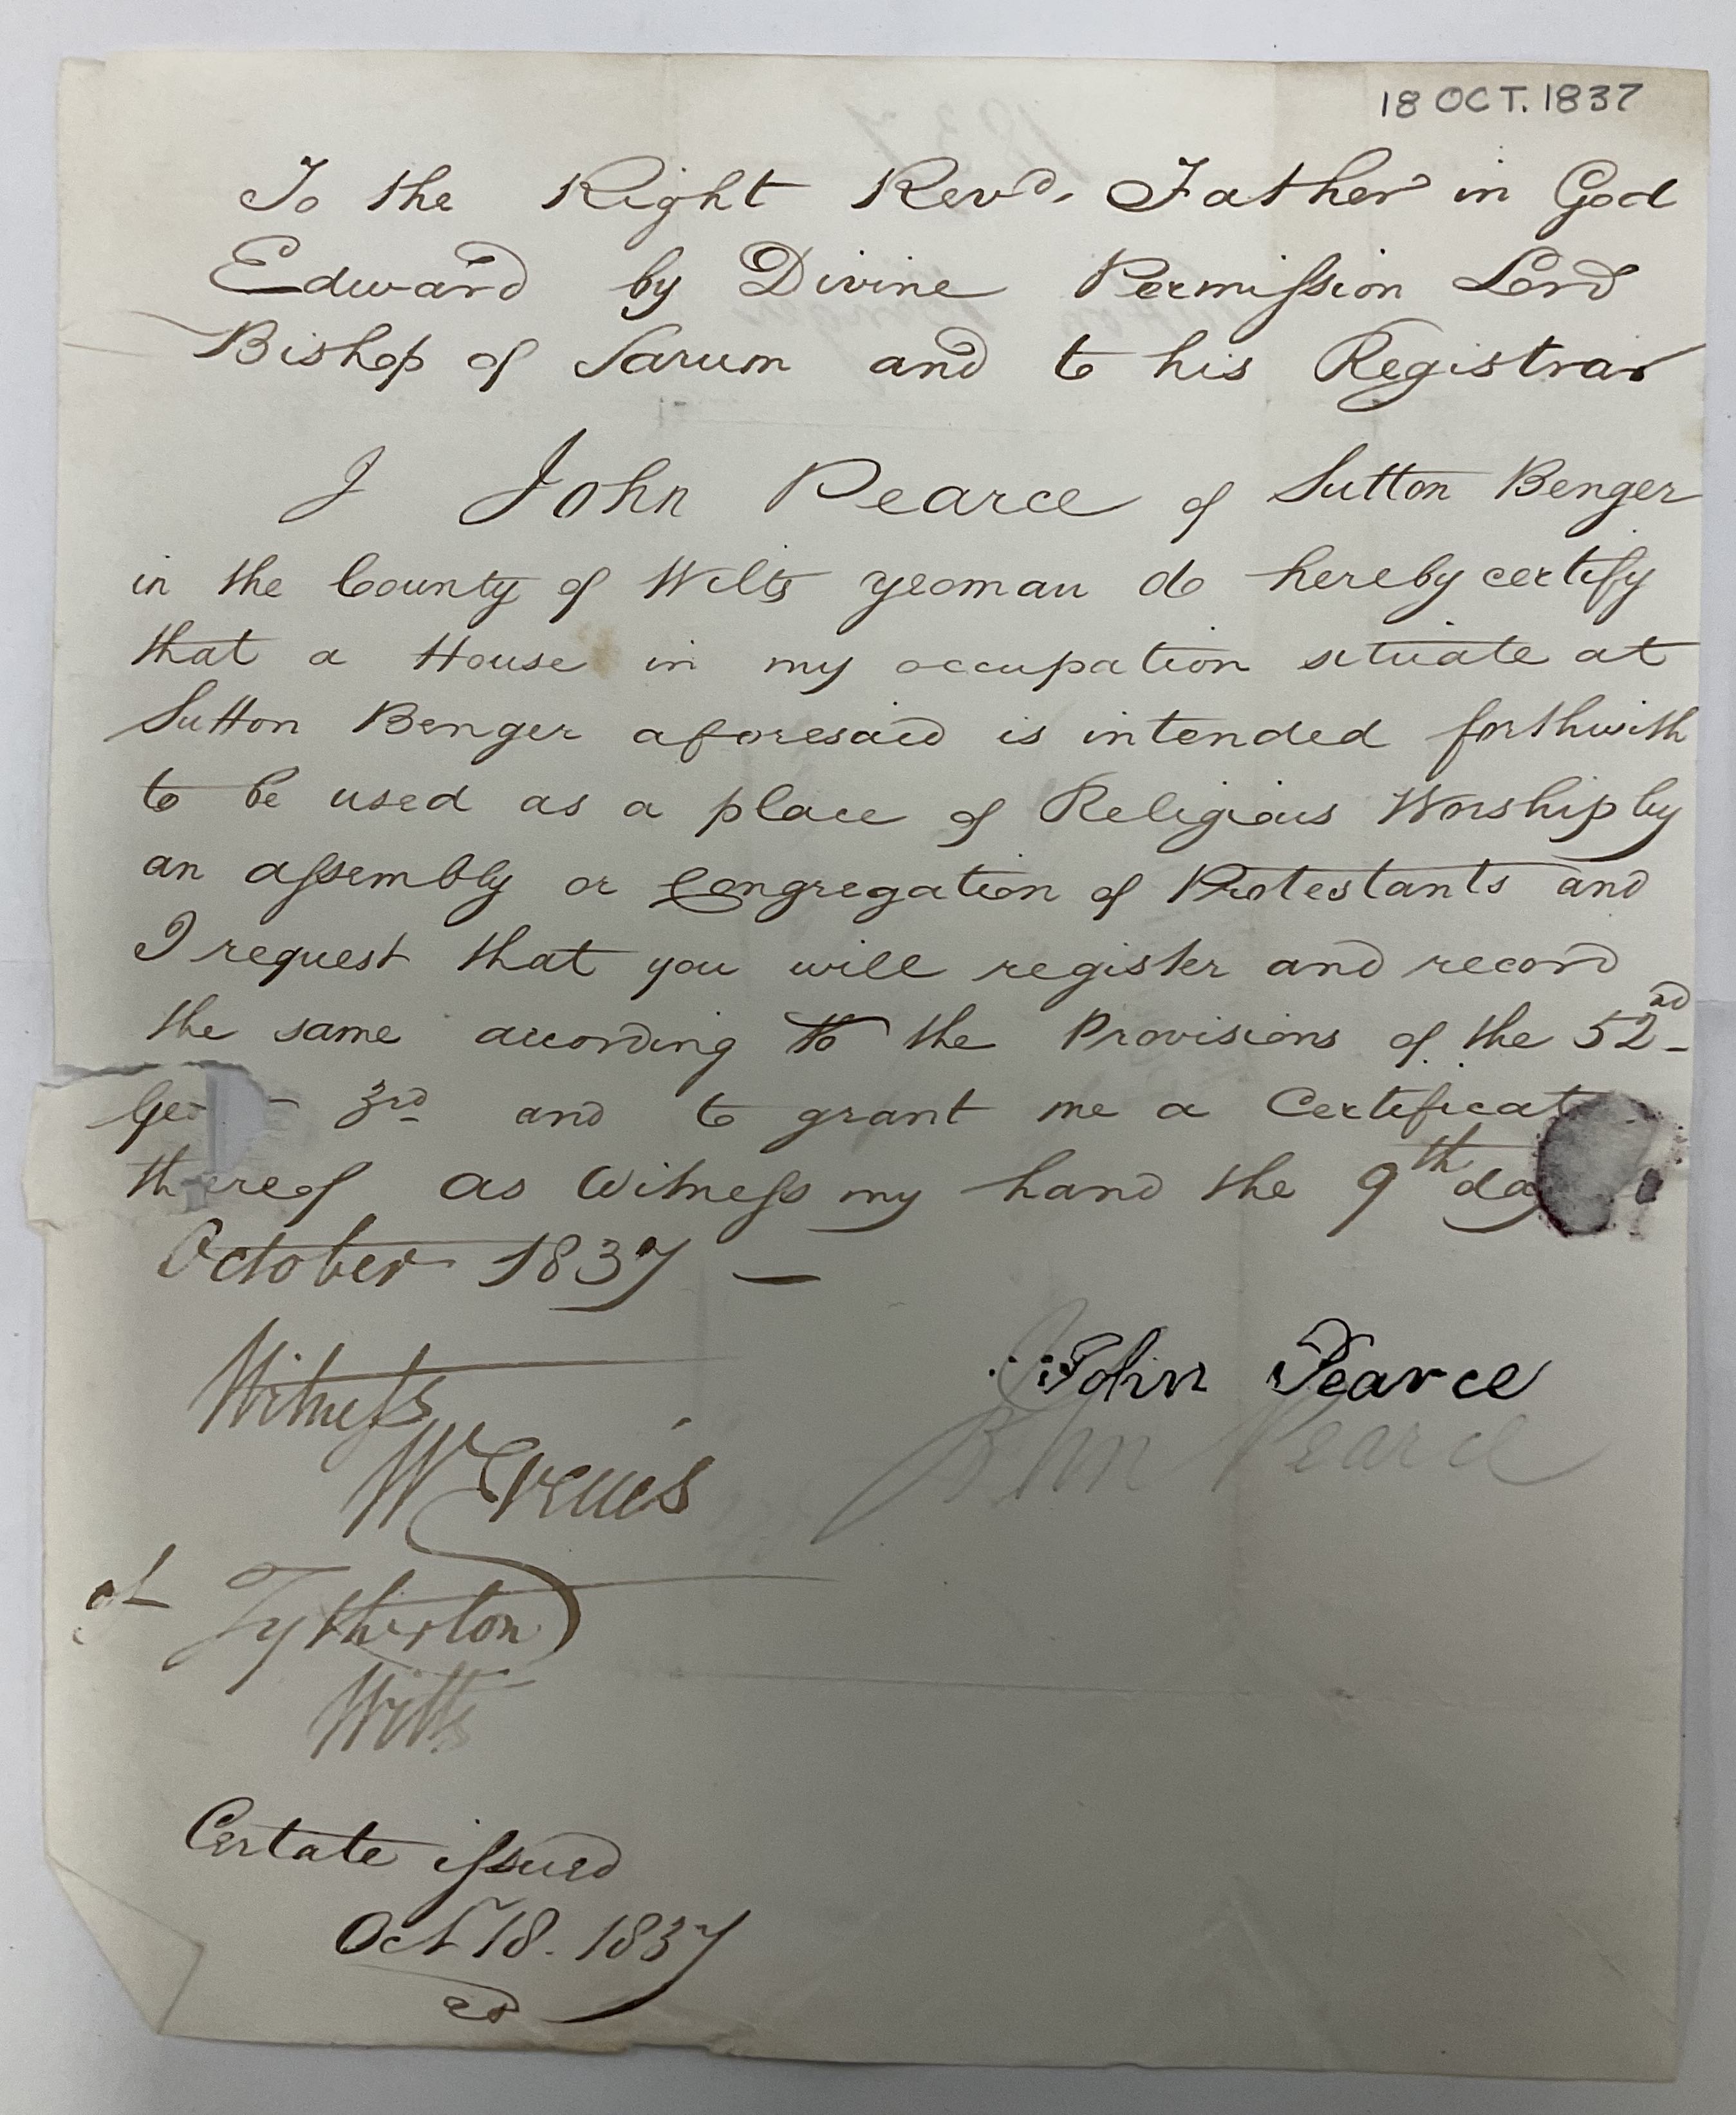 18 OCT. 1837
To the Right Revd. Father in God
Edward by Divine Permission Lord
Bishop of Sarum and to his Registrar
I John Pearce of Sutton Benger
in the County of Wilts yeoman do hereby certify
that a House in my occupation situate at
Sutton Benger aforesaid is intended forthwith
to be used as a place of Religious Worship by
an assembly or Congregation of Protestants and
I request that you will register and record
the same according to the Provisions of the 52nd
Geo 3rd and to grant me a Certificat
thereof as Witness my hand the 9th day
October 1837 —
Witness
John Pearce
John Pearce
W
of Tytherton
Wilts
Certate issued
Oct 18. 1837